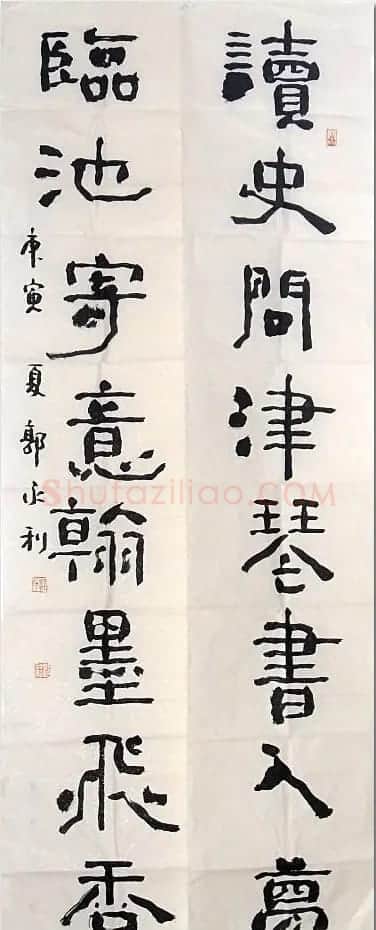 讀史問津琴書入夢
臨池寄意翰墨飛香
庚寅 夏 郭永利
Shufaziliao.COM